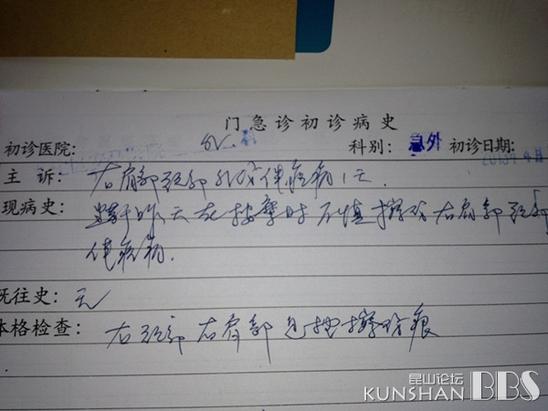 门急诊初诊病史
初诊医院: 科别: 急外 初诊日期:
主 诉: 右肩部颈部外伤伴疼痛1天.
现病史: 患者于昨天在按摩时不慎擦伤右肩部颈部
伴疼痛.
既往史: 无
体格检查: 右颈部右肩部 擦伤痕
昆山论坛
KUNSHAN BBS